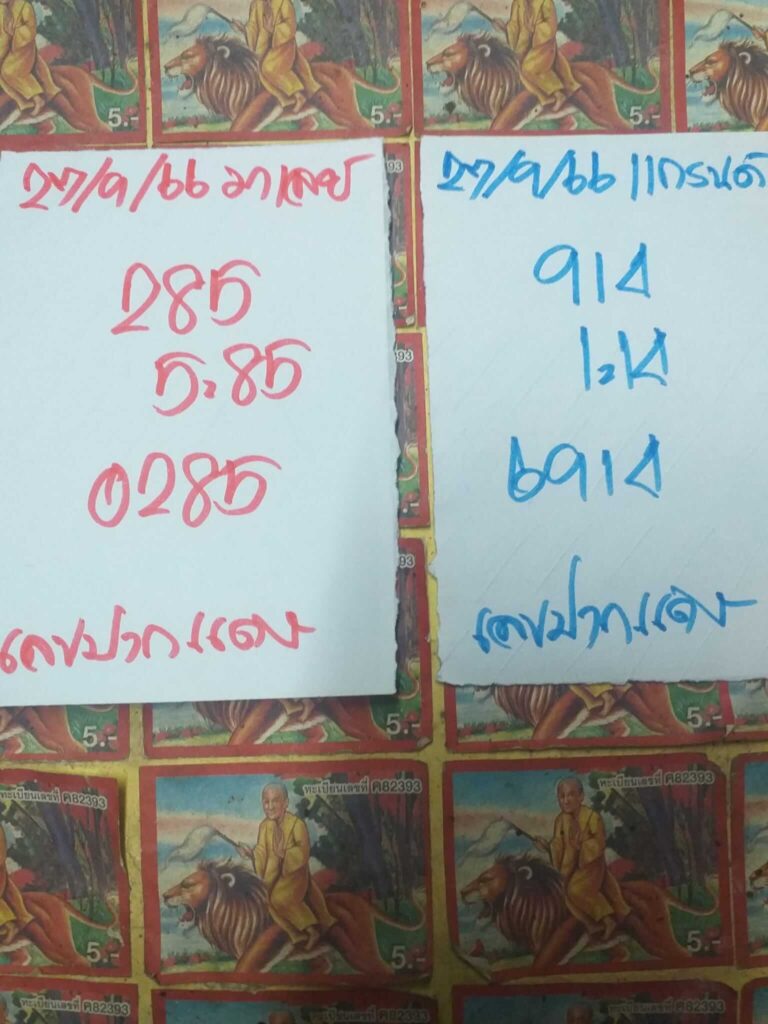 5.-
5.-
5.-
27/9/66 มาเลย์
285
5.85
0285
เลขปากแดง
27/9/66 แกรนด์
914
1.14
6914
เลขปากแดง
93
93
93
5.-
5.-
5.-
ทะเบียนเลขที่ ค82393
5.-
ทะเบียนเลขที่ ค82393
5.-
ทะเบียนเลขที่ ค82393
5.-
ทะเบียนเลขที่ ค82393
ทะเบียนเลขที่ ค82393
ทะเบียนเลขที่ ค82393